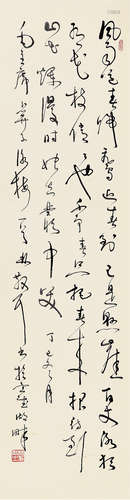 風雨送春歸飛雪迎春到已是懸崖百丈冰猶
有花枝俏俏也不争春只把春来报待到
山花爛漫時她在叢中笑 丁巳 月
毛主席卜算子詠梅一首 敬 書